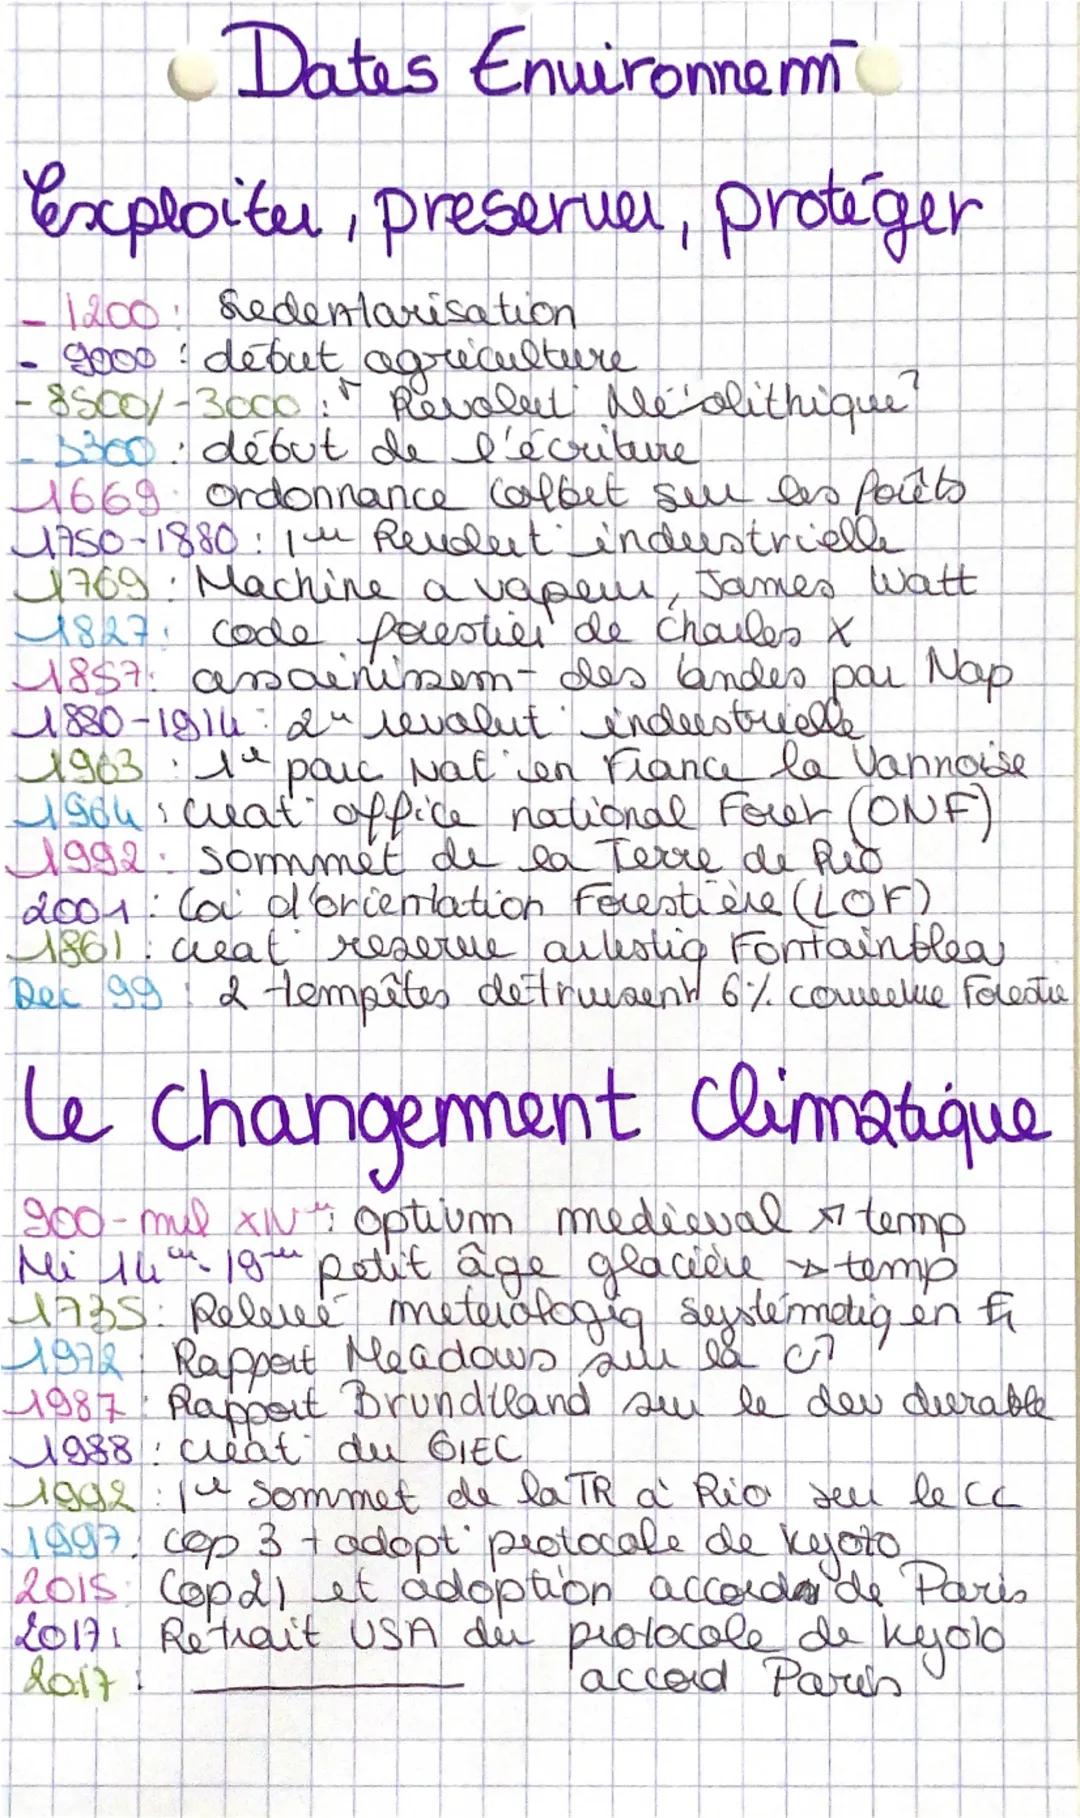 Dates Environnem̄
Exploiter, preserver, protéger
- 1200 : Sedentarisation
- 9000 : début agriculture
- 8500/-3000 : " Revolut° Néolithique "
- 3300 : début de l'écriture
1669 : ordonnance Colbert sur les forêts
1750-1880 : 1ere Revolut° industrielle
1769 : Machine a vapeur, James Watt
1827 : code forestier de Charles X
1857 : assainissem- des landes par Nap
1880-1914 : 2e revolut° industrielle
1963 : 1er parc Nat° en France la Vannoise
1964 : creat° office national Foret (ONF)
1992 : sommet de la Terre de Rio
2001 : Loi d'orientation Forestière (LOF)
1861 : creat° reserve artistiq Fontainblea
Dec 99 : 2 tempêtes détruisent 6% couvertue Forestie
Le Changement Climatique
900-mil XIVe : optium medieval ↗ temp
Mi 14e-19eme petit âge glacière ↘ temp
1735 : Relevé meteorologiq systémetiq en Fr
1972 : Rapport Meadows sur la c°
1987 : Rapport Brundtland sur le dev durable
1988 : créat° du GIEC
1992 : 1er sommet de la TR à Rio sur le CC
1997 : cop 3 + adopt° protocole de Kyoto
2015 : Cop21 et adoption accords de Paris
2017 : Retrait USA du protocole de Kyoto
2017 : ____________ accord Paris